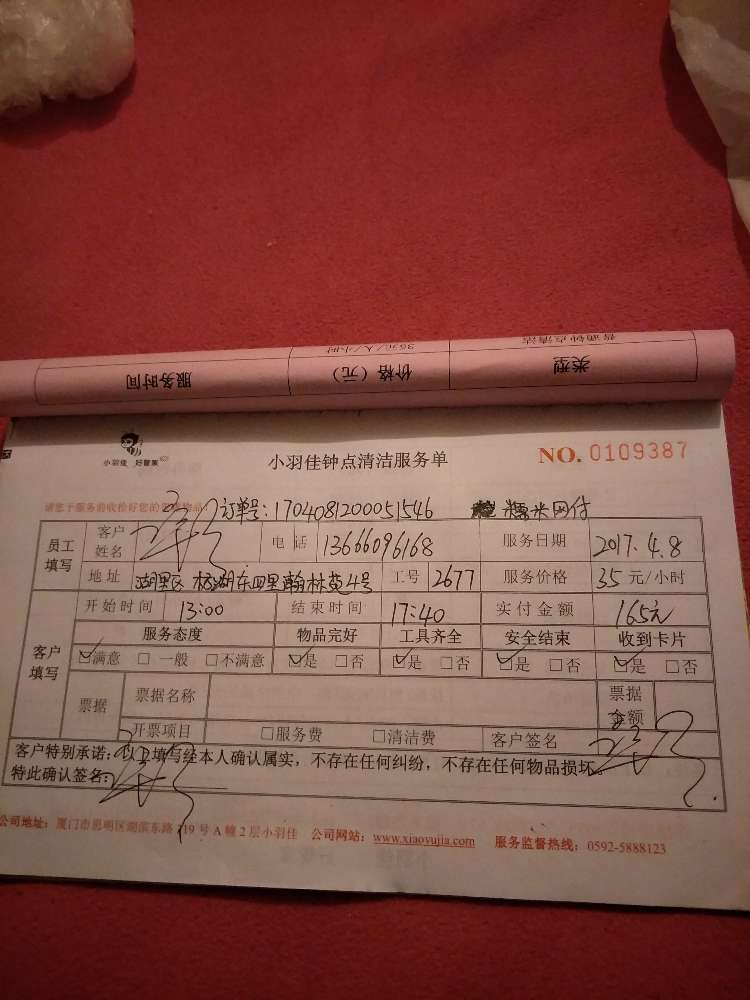 普通钟点清洁 35元/人/小时
类型 价格（元） 服务时间
小羽佳 好管家
小羽佳钟点清洁服务单
NO. 0109387
请您于服务前收检好您的贵重物品
订单号：1704081200051546 糯米网付
员工填写 客户姓名 电话 13666096168 服务日期 2017.4.8
地址 湖里区 东四里翰林苑4号 工号 2677 服务价格 35 元/小时
客户填写 开始时间 13:00 结束时间 17:40 实付金额 165元
服务态度 物品完好 工具齐全 安全结束 收到卡片
☑满意 □一般 □不满意 ☑是 □否 ☑是 □否 ☑是 □否 ☑是 □否
票据 票据名称 票据金额
开票项目 □服务费 □清洁费 客户签名
客户特别承诺：以上填写经本人确认属实，不存在任何纠纷，不存在任何物品损坏。
特此确认签名：
公司地址：厦门市思明区湖滨东路119号A幢2层小羽佳 公司网站：www.xiaoyujia.com 服务监督热线：0592-5888123